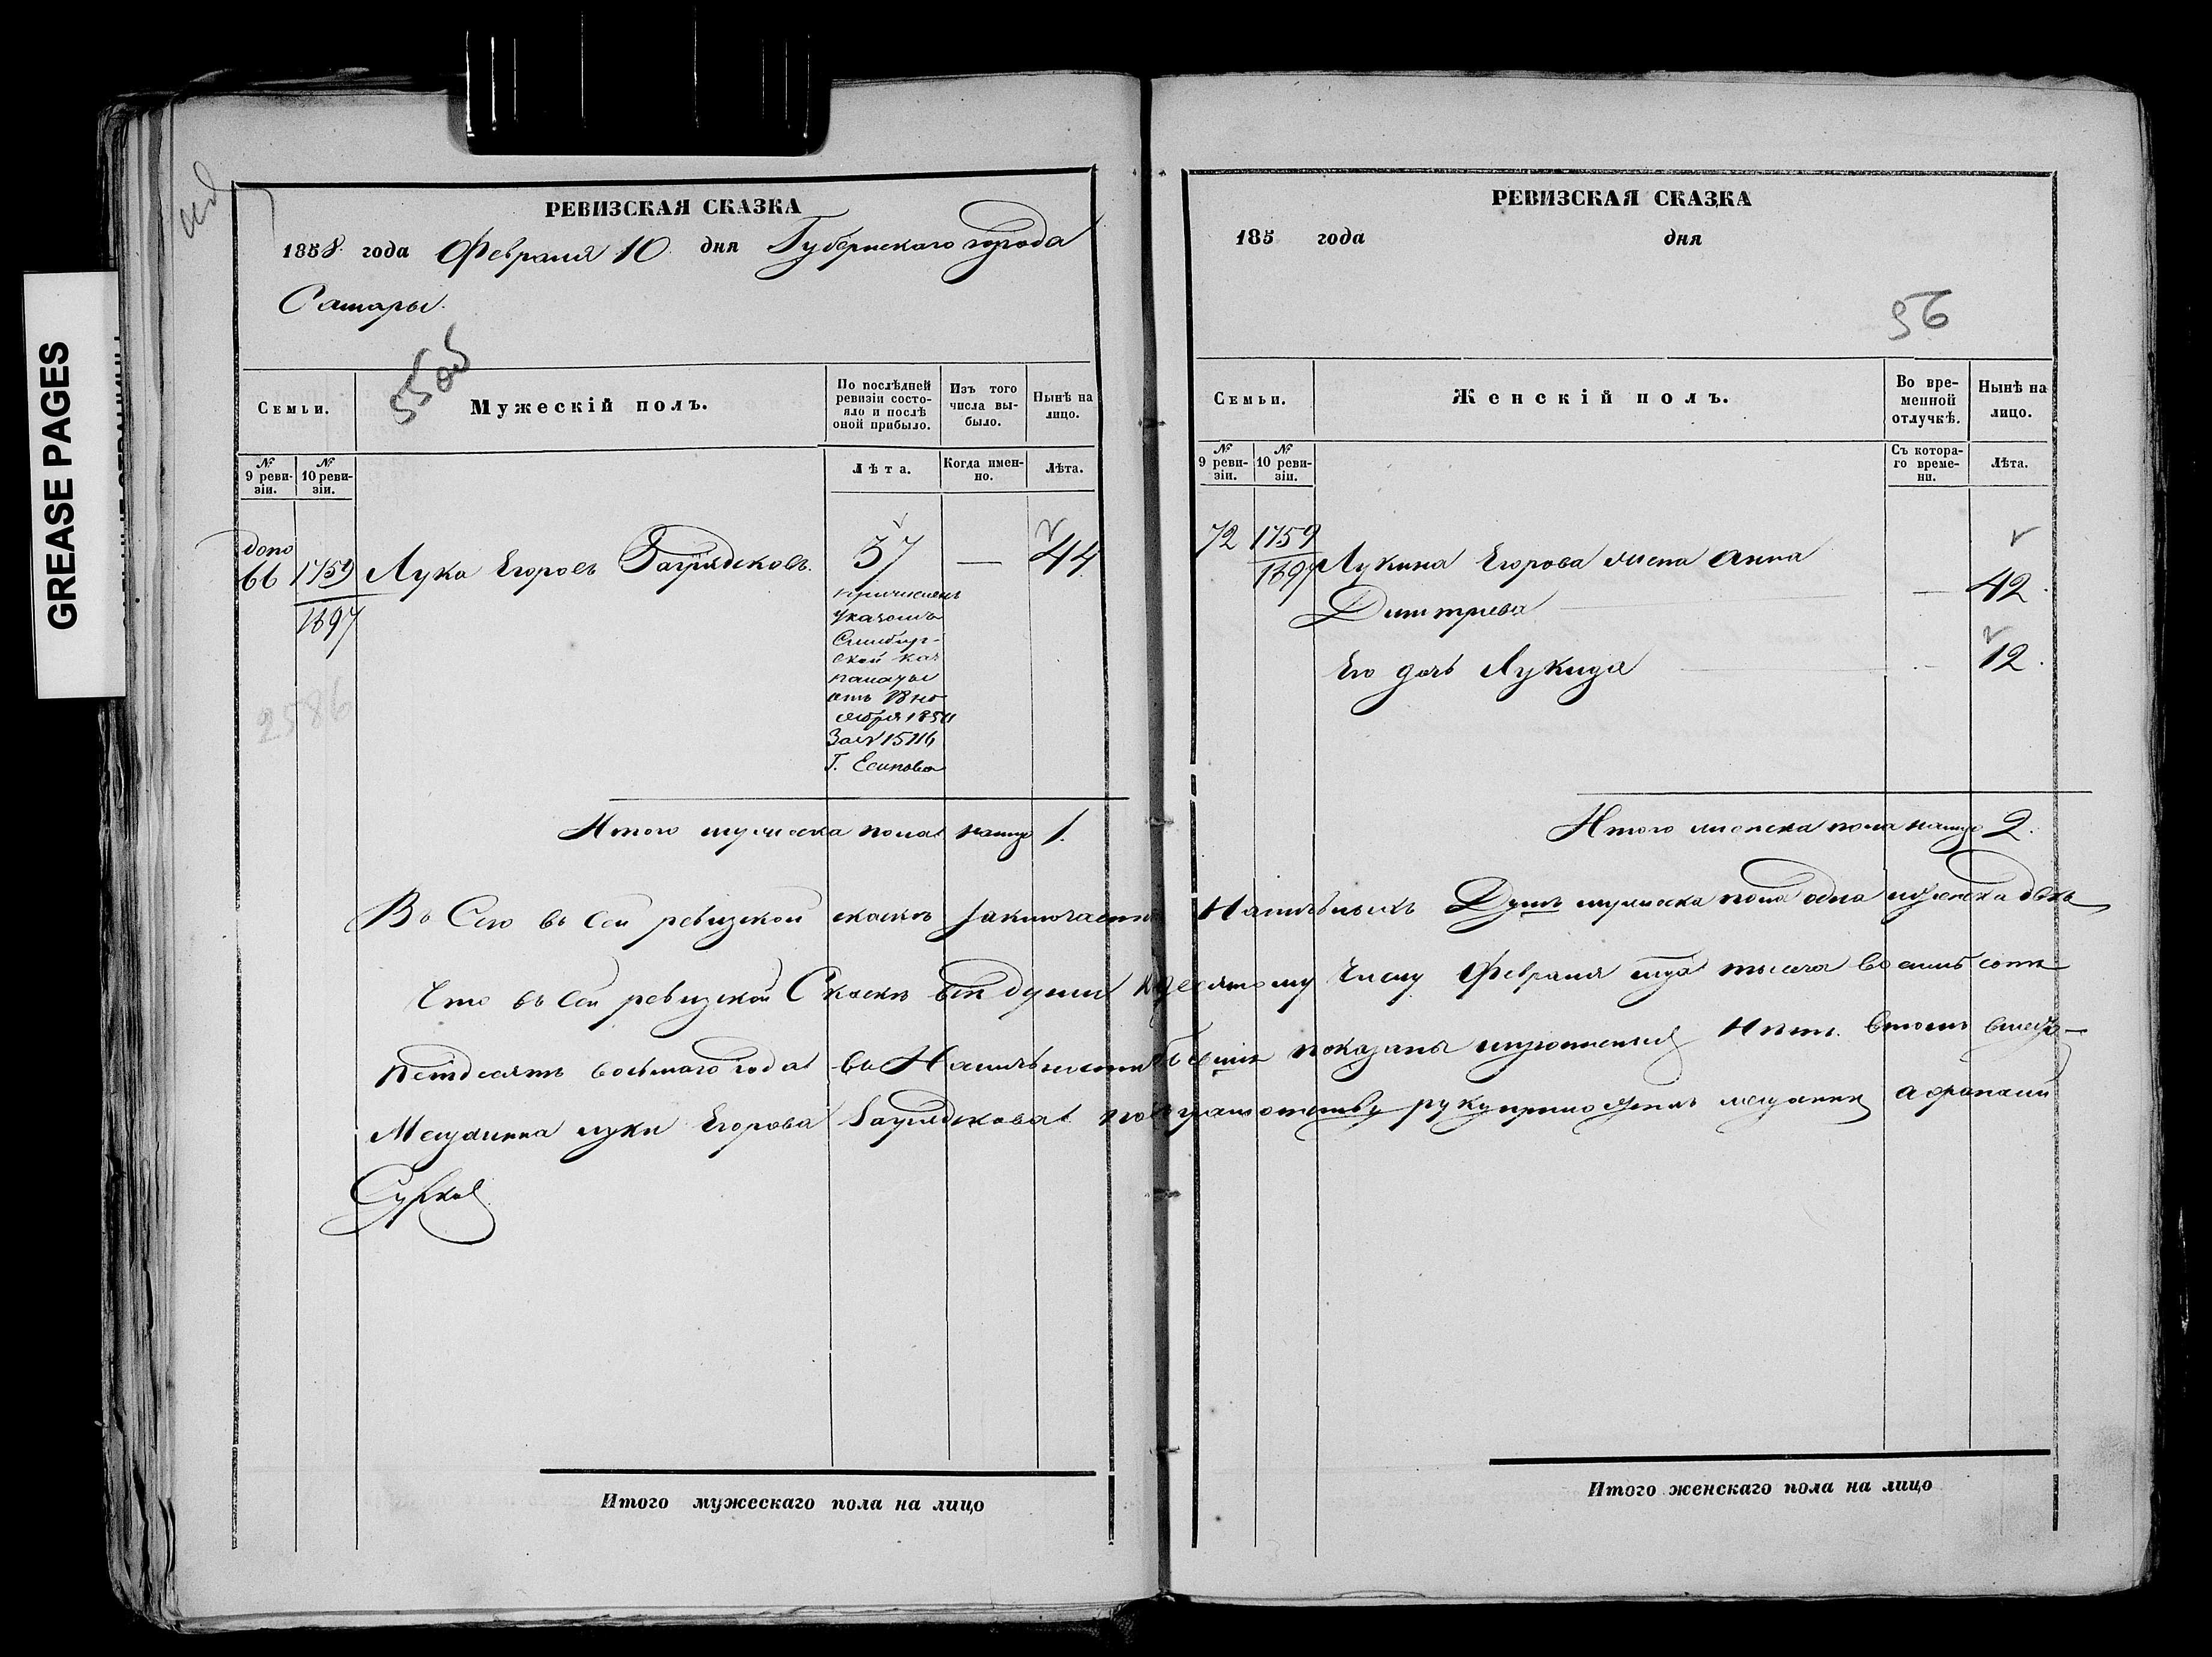 GREASE PAGES
РЕВИЗСКАЯ СКАЗКА
1858 года Февраля 10 дня Губернскаго города
Самары.
5505
Семьи.
Мужескій полъ.
По послѣдней ревизіи состояло и послѣ оной прибыло.
Изъ того числа выбыло.
Нынѣ на лицо.
№ 9 ревизіи.
№ 10 ревизіи.
Лѣта.
Когда именно.
Лѣта.
допо 66 1759 Лука Егоровъ 37 — 44
1697
причисленъ
указомъ
Симбир-
ской каз
палаты
отъ
ноября
2586
Итого мужеска пола налицо 1.
РЕВИЗСКАЯ СКАЗКА
185 года дня
56
Семьи.
Женскій полъ.
Во временной отлучкѣ.
Нынѣ на лицо.
№ 9 ревизіи.
№ 10 ревизіи.
Съ котораго времени.
Лѣта.
72 1759 Лукина Егорова жена Анна
1697
Дмитриева — 42.
Его дочь — 12.
Итого женска пола налицо 2.
Всего въ сей ревизской сказкѣ заключается Наличныхъ Душъ мужеска пола одна и женска двѣ
Что въ сей ревизской Сказкѣ всѣ души къ десятому числу Февраля тысяча восемь сотъ
петдесятъ восьмаго года въ Наличности показаны нѣтъ. Втомъ вместо
Мещанина Луки Егорова руку приложилъ мещанинъ
Сурков
Итого мужескаго пола на лицо
Итого женскаго пола на лицо